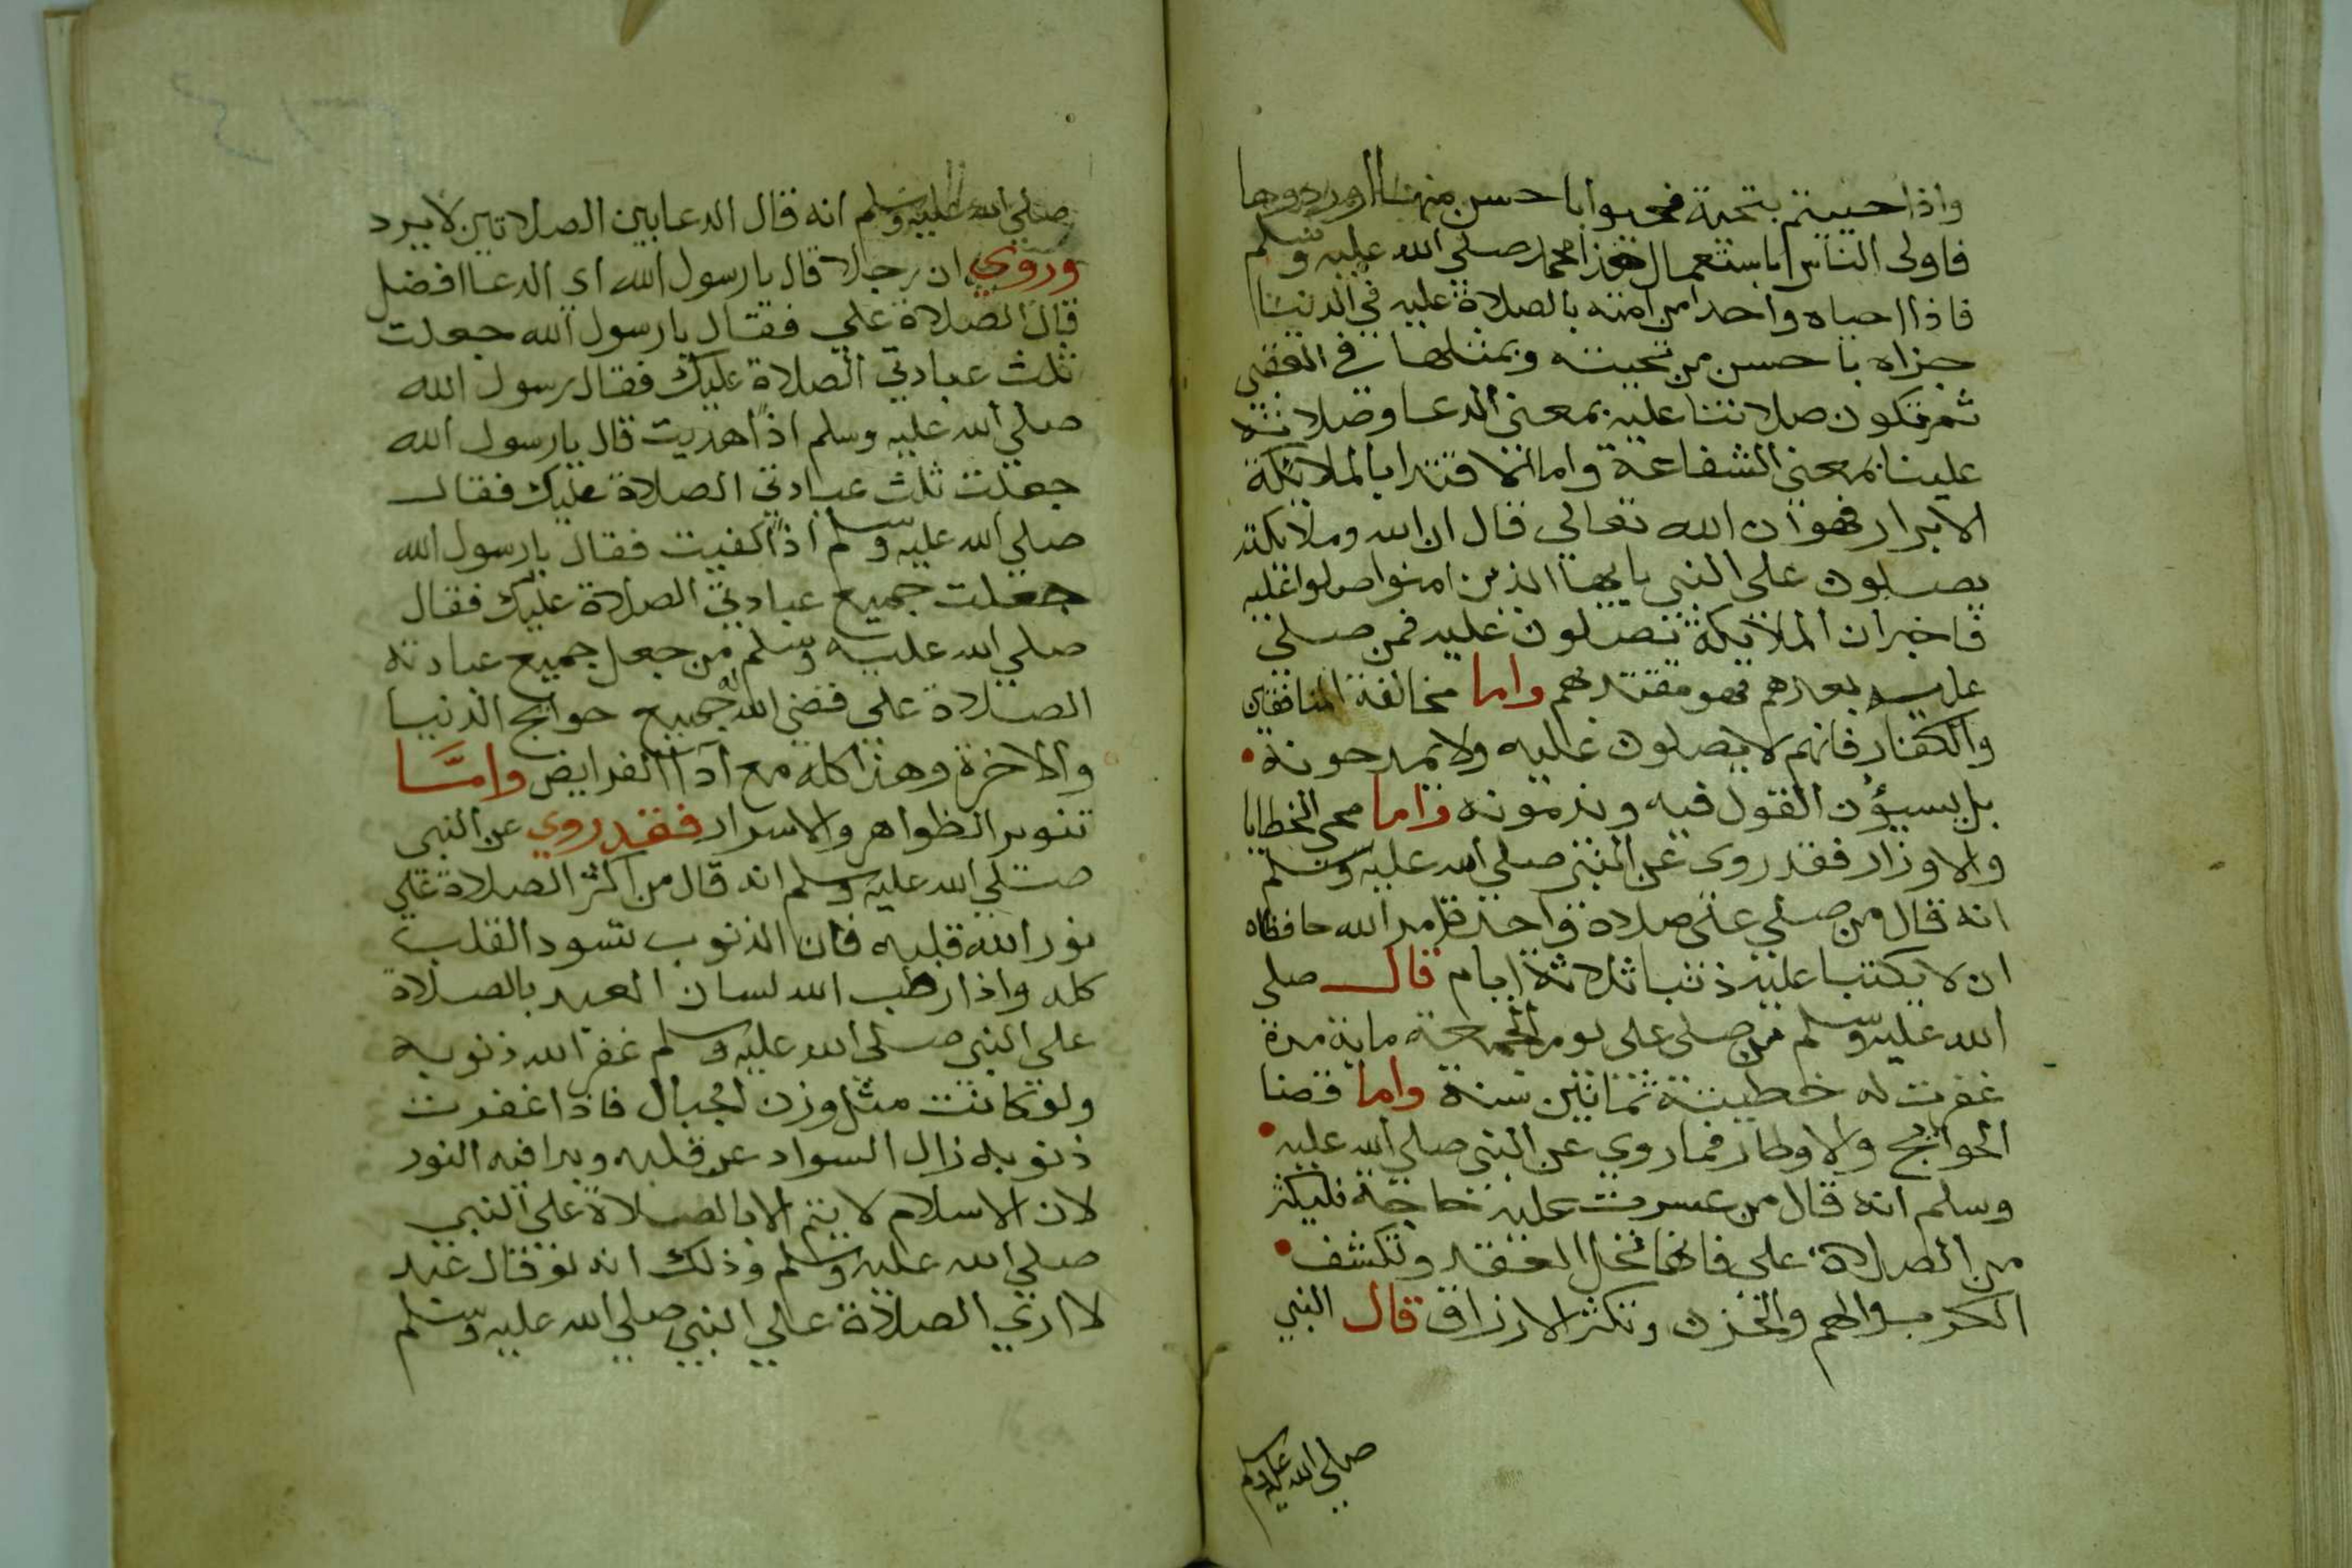 واذا حييتم بتحية فحيوا باحسن منها او ردوها
فاولى الناس باستعمال هذا محمد صلى الله عليه وسلم
فاذا احياه واحد من امته بالصلاة عليه في الدنيا
جزاه باحسن من تحيته وبمثلها في العقبى
ثم تكون صلاتنا عليه بمعنى الدعا وصلاته
علينا بمعنى الشفاعة واما الاقتدا بالملايكة
الابرار فهو ان الله تعالى قال ان الله وملايكته
يصلون على النبي يايها الذين امنوا صلوا عليه
فاخبر ان الملايكة تصلون عليه فمن صلى
عليه بعدهم فهو مقتد بهم واما مخالفة المنافقين
والكفار فانهم لا يصلون عليه ولا يمدحونه
بل يسيؤن القول فيه ويذمونه واما محى الخطايا
والاوزار فقد روى عن النبي صلى الله عليه وسلم
انه قال من صلى على صلاة واحدة امر الله حافظاه
ان لا يكتبا عليه ذنبا ثلاثة ايام قال صلى
الله عليه وسلم من صلى على يوم الجمعة ماية مرة
غفرت له خطيئة ثمانين سنة واما قضا
الحوائج والاوطار فما روي عن النبي صلى الله عليه
وسلم انه قال من عسرت عليه حاجة فليكثر
من الصلاة على فانها تحل العقد وتكشف
الكرب والهم والحزن وتكثر الارزاق قال النبي
صلى الله عليه وسلم
صلي الله عليه وسلم انه قال الدعا بين الصلاتين لا يرد
وروي ان رجلا قال يا رسول الله اى الدعا افضل
قال الصلاة علي فقال يا رسول الله جعلت
ثلث عبادتي الصلاة عليك فقال رسول الله
صلي الله عليه وسلم اذًا هديت قال يا رسول الله
جعلت ثلث عبادتي الصلاة عليك فقال
صلي الله عليه وسلم اذًا كفيت فقال يا رسول الله
جعلت جميع عبادتي الصلاة عليك فقال
صلي الله عليه وسلم من جعل جميع عبادته
الصلاة علي قضى الله له جميع حوايج الدنيا
والاخرة وهذا كله مع اداا الفرايض وامَّا
تنوير الظواهر والاسرار فقد روي عن النبي
صلي الله عليه وسلم انه قال من اكثر الصلاة على
نور الله قلبه فان الذنوب تسود القلب
كله واذا رطب الله لسان العبد بالصلاة
على النبي صلى الله عليه وسلم غفر الله ذنوبه
ولو كانت مثل وزن الجبال فاذا غفرت
ذنوبه زال السواد عن قلبه وبدا فيه النور
لان الاسلام لا يتم الا بالصلاة على النبي
صلي الله عليه وسلم وذلك انه لو قال عبد
لا ارى الصلاة على النبي صلي الله عليه وسلم